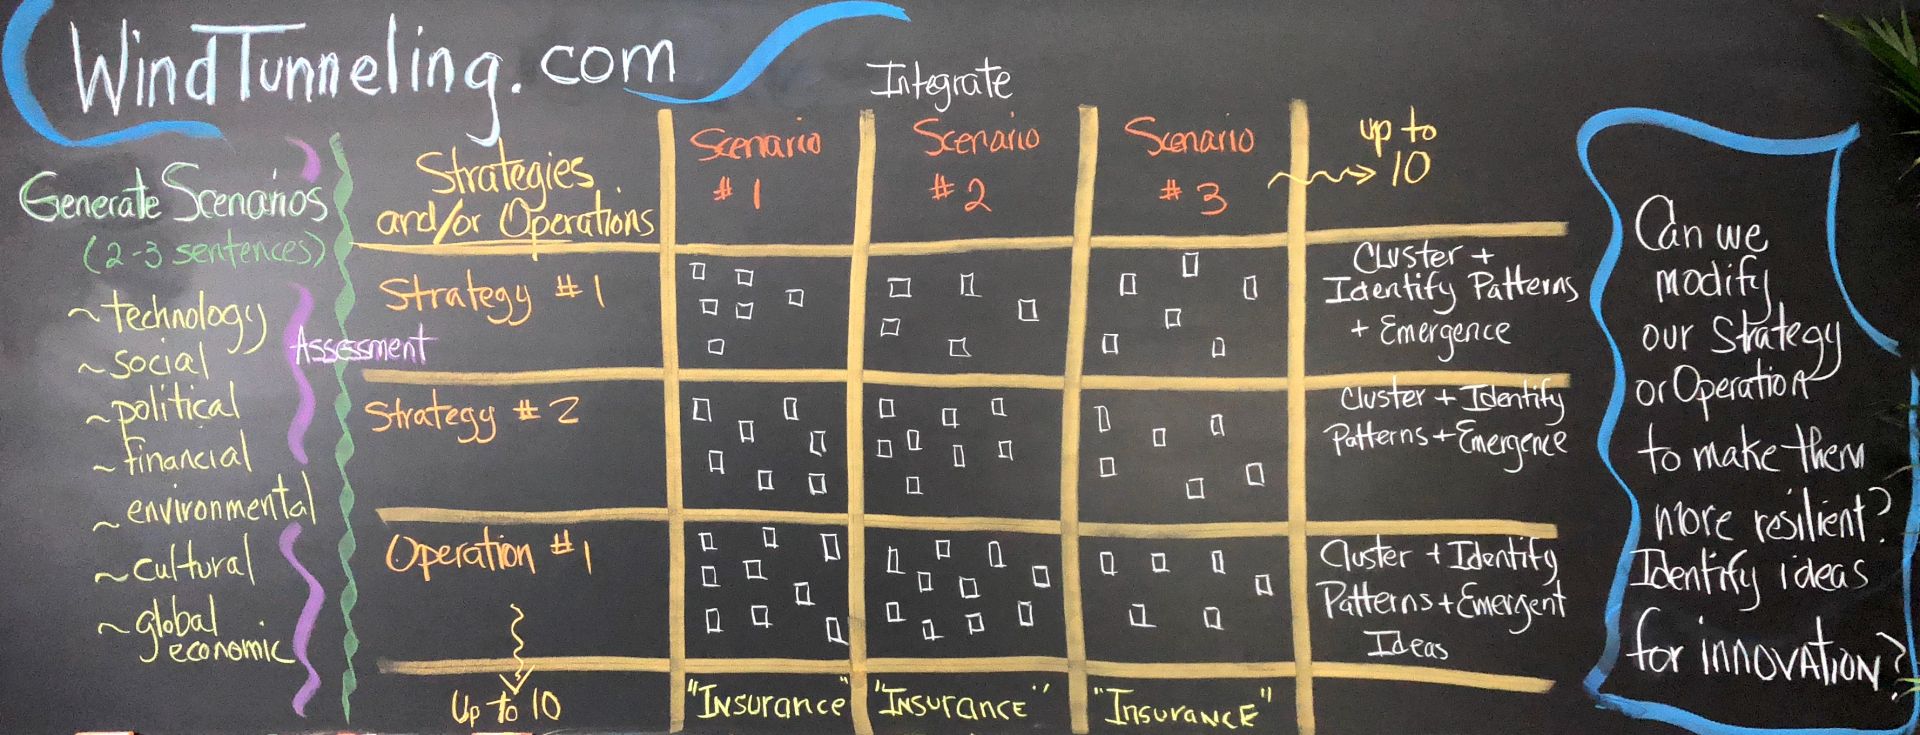 WindTunneling.com
Generate Scenarios
(2-3 sentences)
~technology
~social
~political
~financial
~environmental
~cultural
~global
economic
Assessment
Integrate
Strategies
and/or Operations
Scenario
#1
Scenario
#2
Scenario
#3
up to
10
Strategy #1
Cluster +
Identify Patterns
+ Emergence
Strategy #2
Cluster + Identify
Patterns + Emergence
Operation #1
Cluster + Identify
Patterns + Emergent
Ideas
Up to 10
"Insurance"
"Insurance"
"Insurance"
Can we
modify
our Strategy
or Operation
to make them
more resilient?
Identify ideas
for innovation?